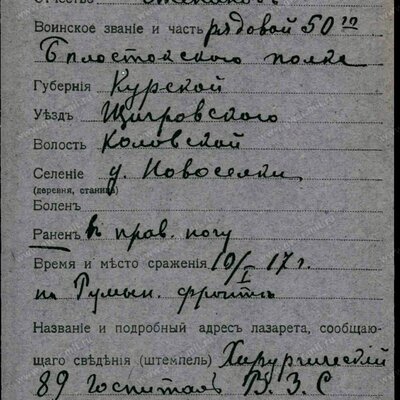 Отчество Степановъ
Воинское званіе и часть рядовой 50го
Бѣлостокского полка
Губернія Курской
Уѣздъ Щигровского
Волость
Селеніе д. Новоселки
(деревня, станица)
Боленъ
Раненъ в прав. ногу
Время и мѣсто сраженія 19/I 17 г.
на Румын. фронтѣ
Названіе и подробный адресъ лазарета, сообщаю-
щаго свѣдѣнія (штемпель) Хирургический
89 госпиталь В. З. С